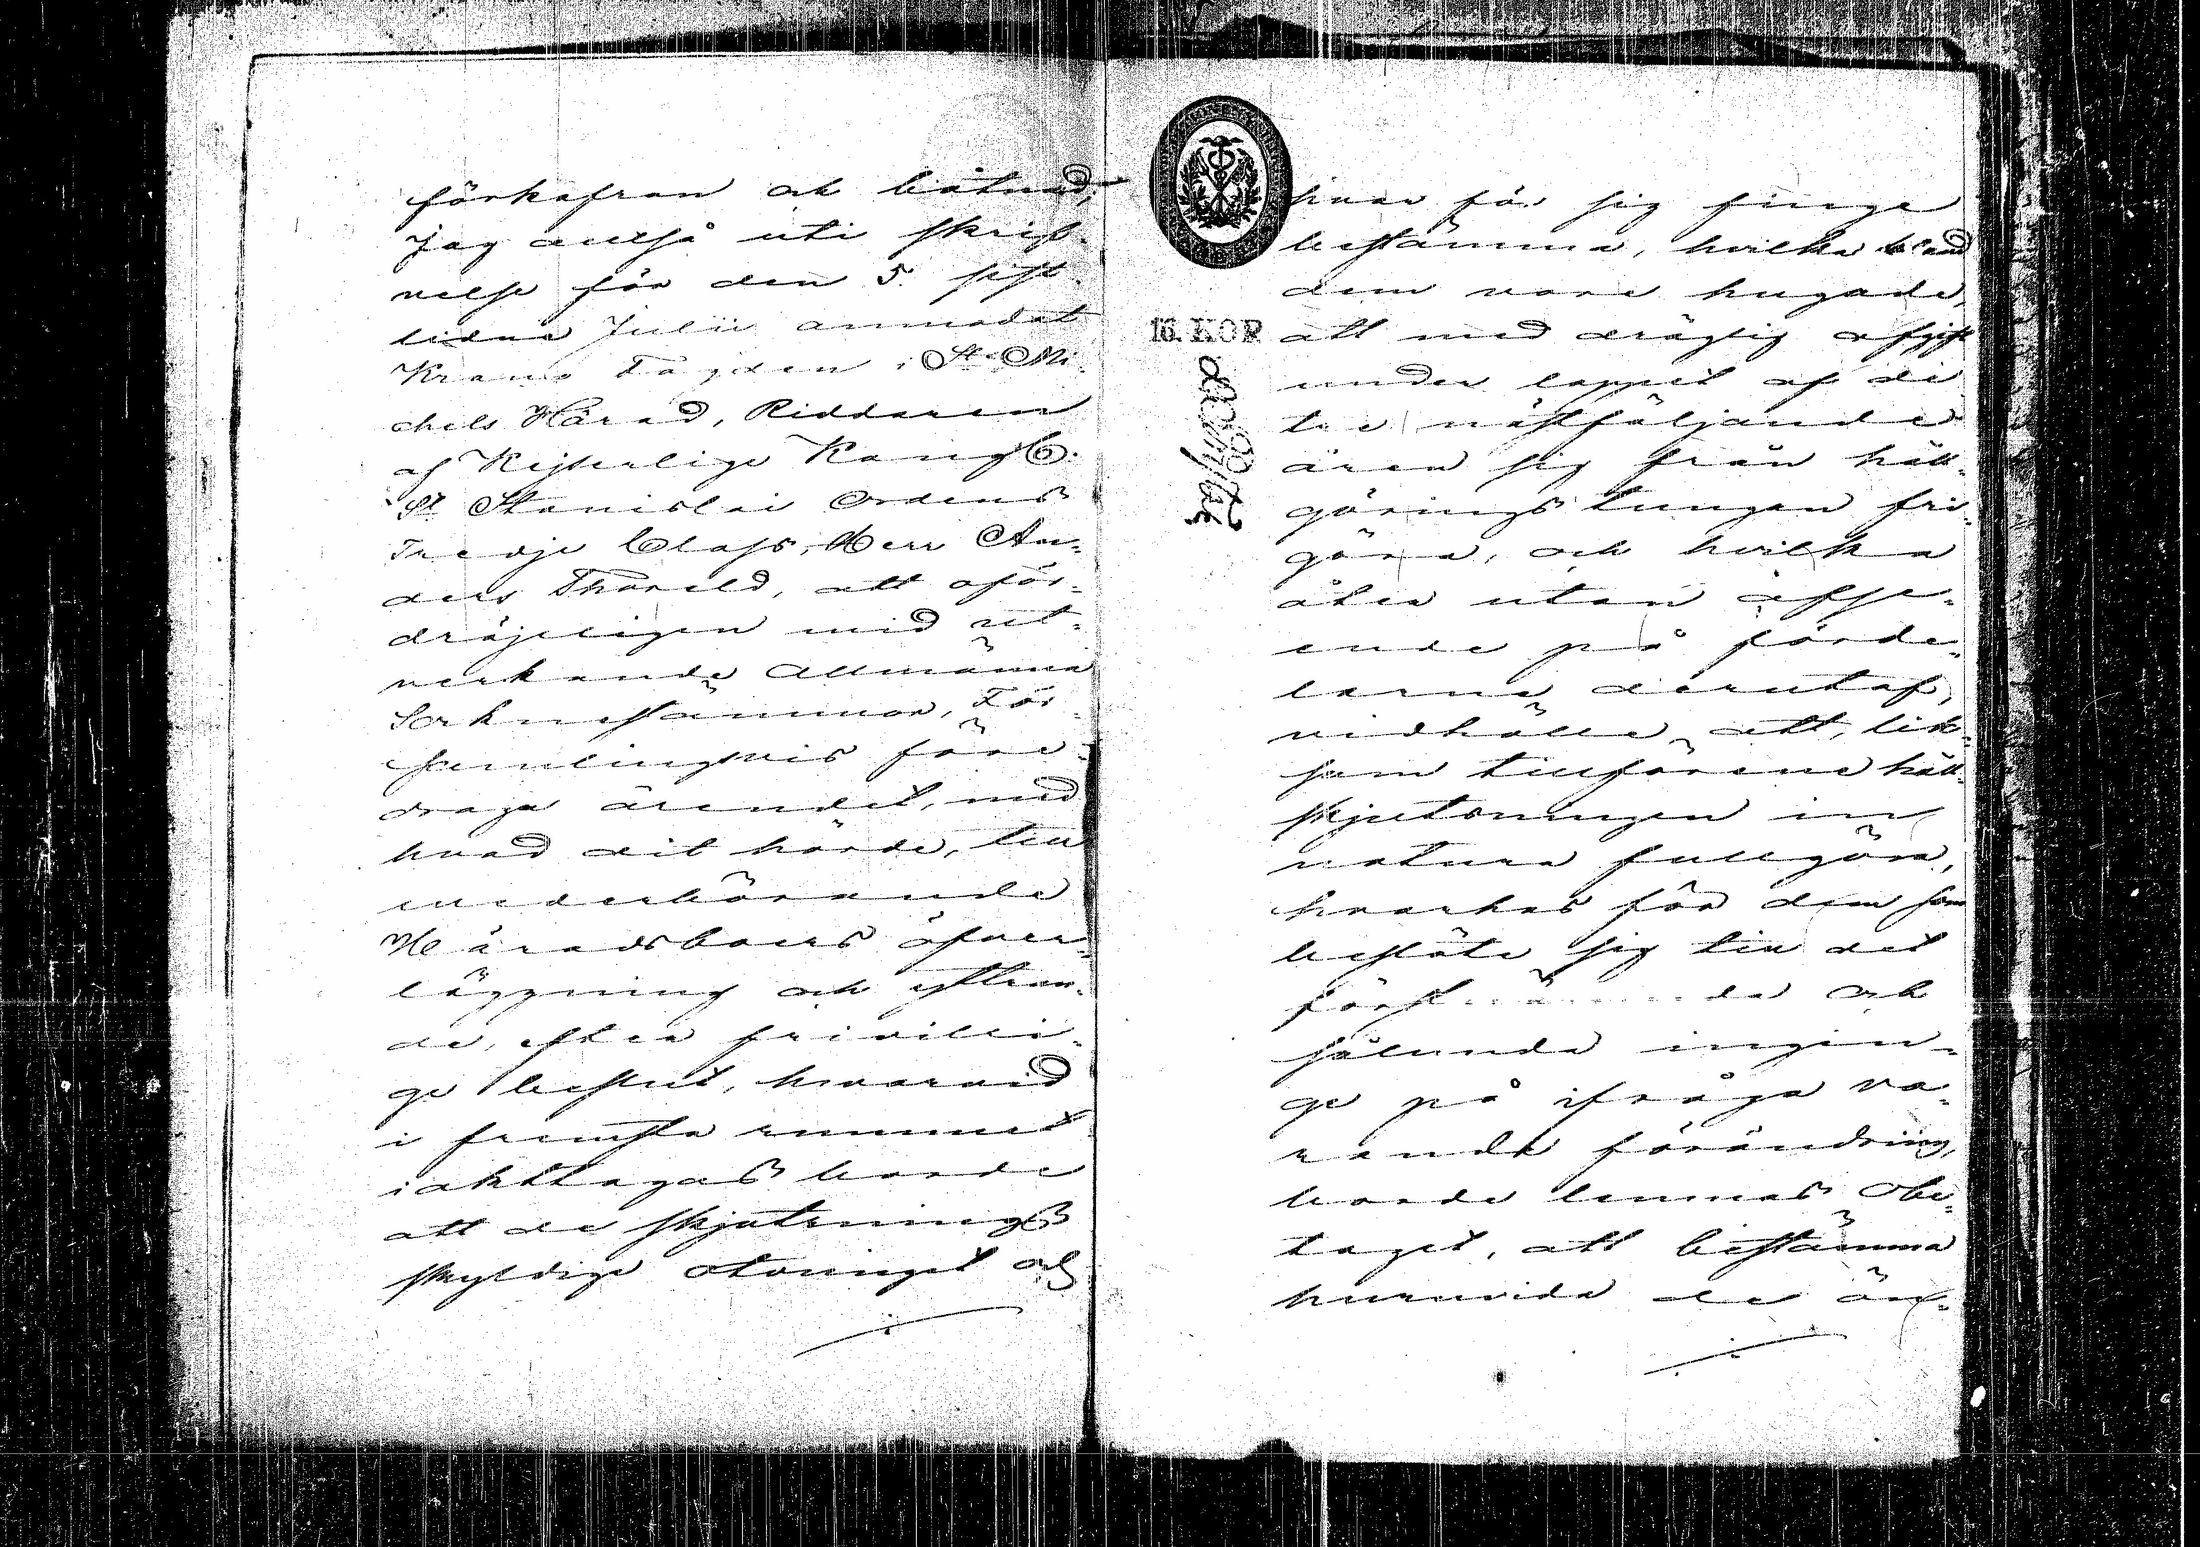 förkofran och båtnad,
Jag altså uti skrif-
velse för den 5. sist-
lidne Julii anmodat
Krono Fogden i St. Mi-
chels Härad, Riddaren
af Kejserlige Kongl.
St Stanislai Ordens
Tredje Class, Herr An-
ders Thoreld, att oför-
dröjeligen med ut-
verkande Allmänna
Socknestämmor, För-
samlingsvis före-
draga ärendet, med
hvad dit hörde, till
vederbörande
Häradsboers öfver-
läggning och yttran-
de, efter frivilli-
ge beslut, hvarvid
i fremsta rummet
iakttagas borde
att de skjutsnings
skyldige otvingat och
16. KOP
hvar för sig finge
bestämma, hvilka bland
dem vore hugade,
att med dräglig afgift
under loppet af de
tre nästföljande
åren sig från håll-
görings tungan fri-
göra, och hvilka
åter utan afse-
ende på förde-
larne derutaf,
vidhålla att, lik-
som tillförene håll-
skjutsningen in
natura fullgöra,
hvarhos för dem som
beslöte sig till det
först da och
sålunda ingin-
ge på ifråga va-
rande förändring,
borde lemnas obe-
taget, att bestämma
huruvida de ön-